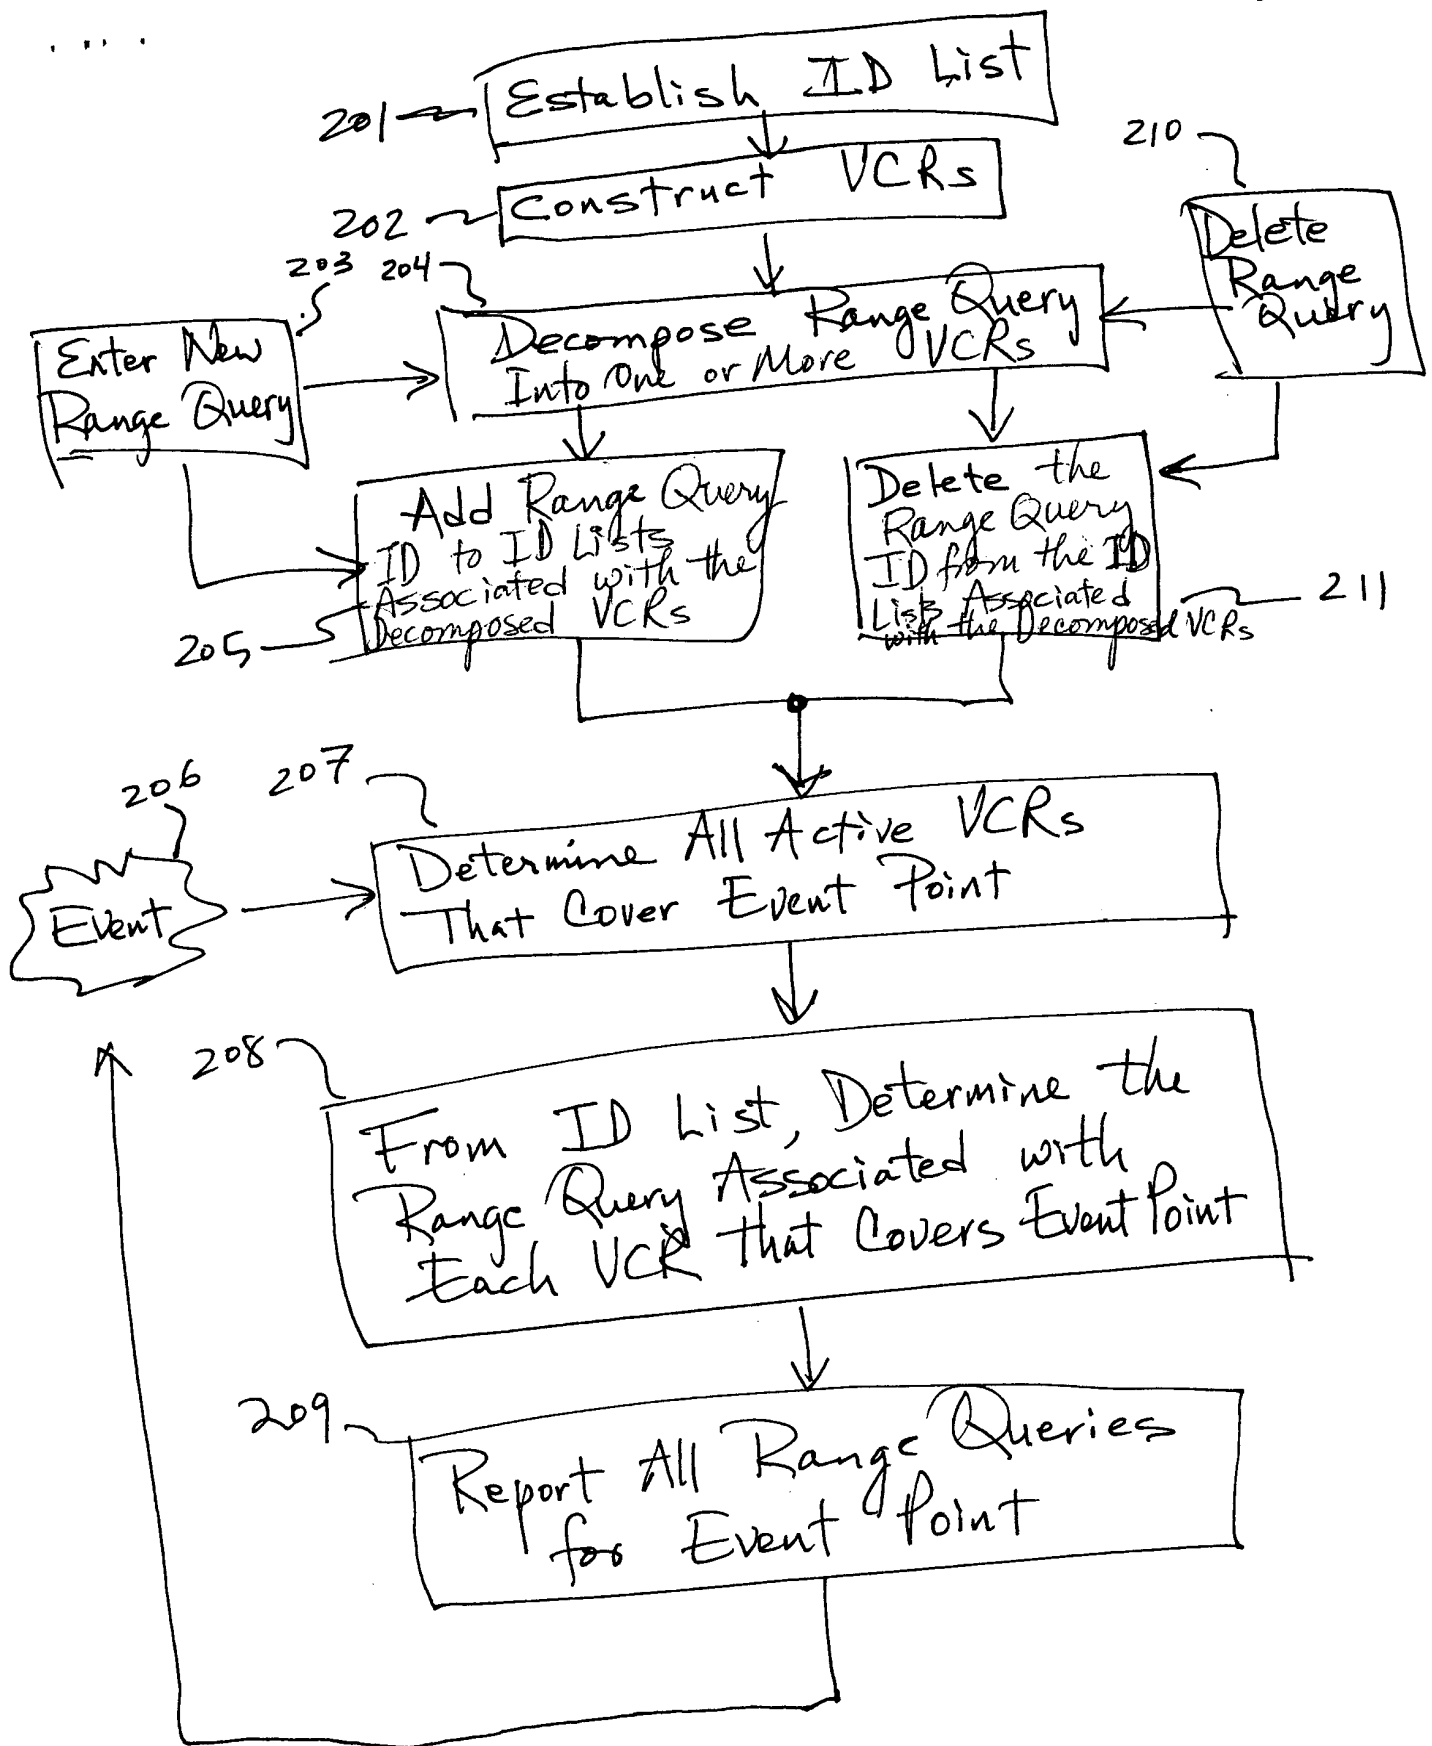 201
Establish ID List
210
202
Construct VCRs
Delete
Range
Query
203
204
Enter New
Range Query
Decompose Range Query
Into One or More VCRs
Add Range Query
ID to ID Lists
Associated with the
Decomposed VCRs
205
Delete the
Range Query
ID from the ID
Lists Associated
with the Decomposed VCRs
211
206
207
Event
Determine All Active VCRs
That Cover Event Point
208
From ID List, Determine the
Range Query Associated with
Each VCR that Covers Event Point
209
Report All Range Queries
for Event Point